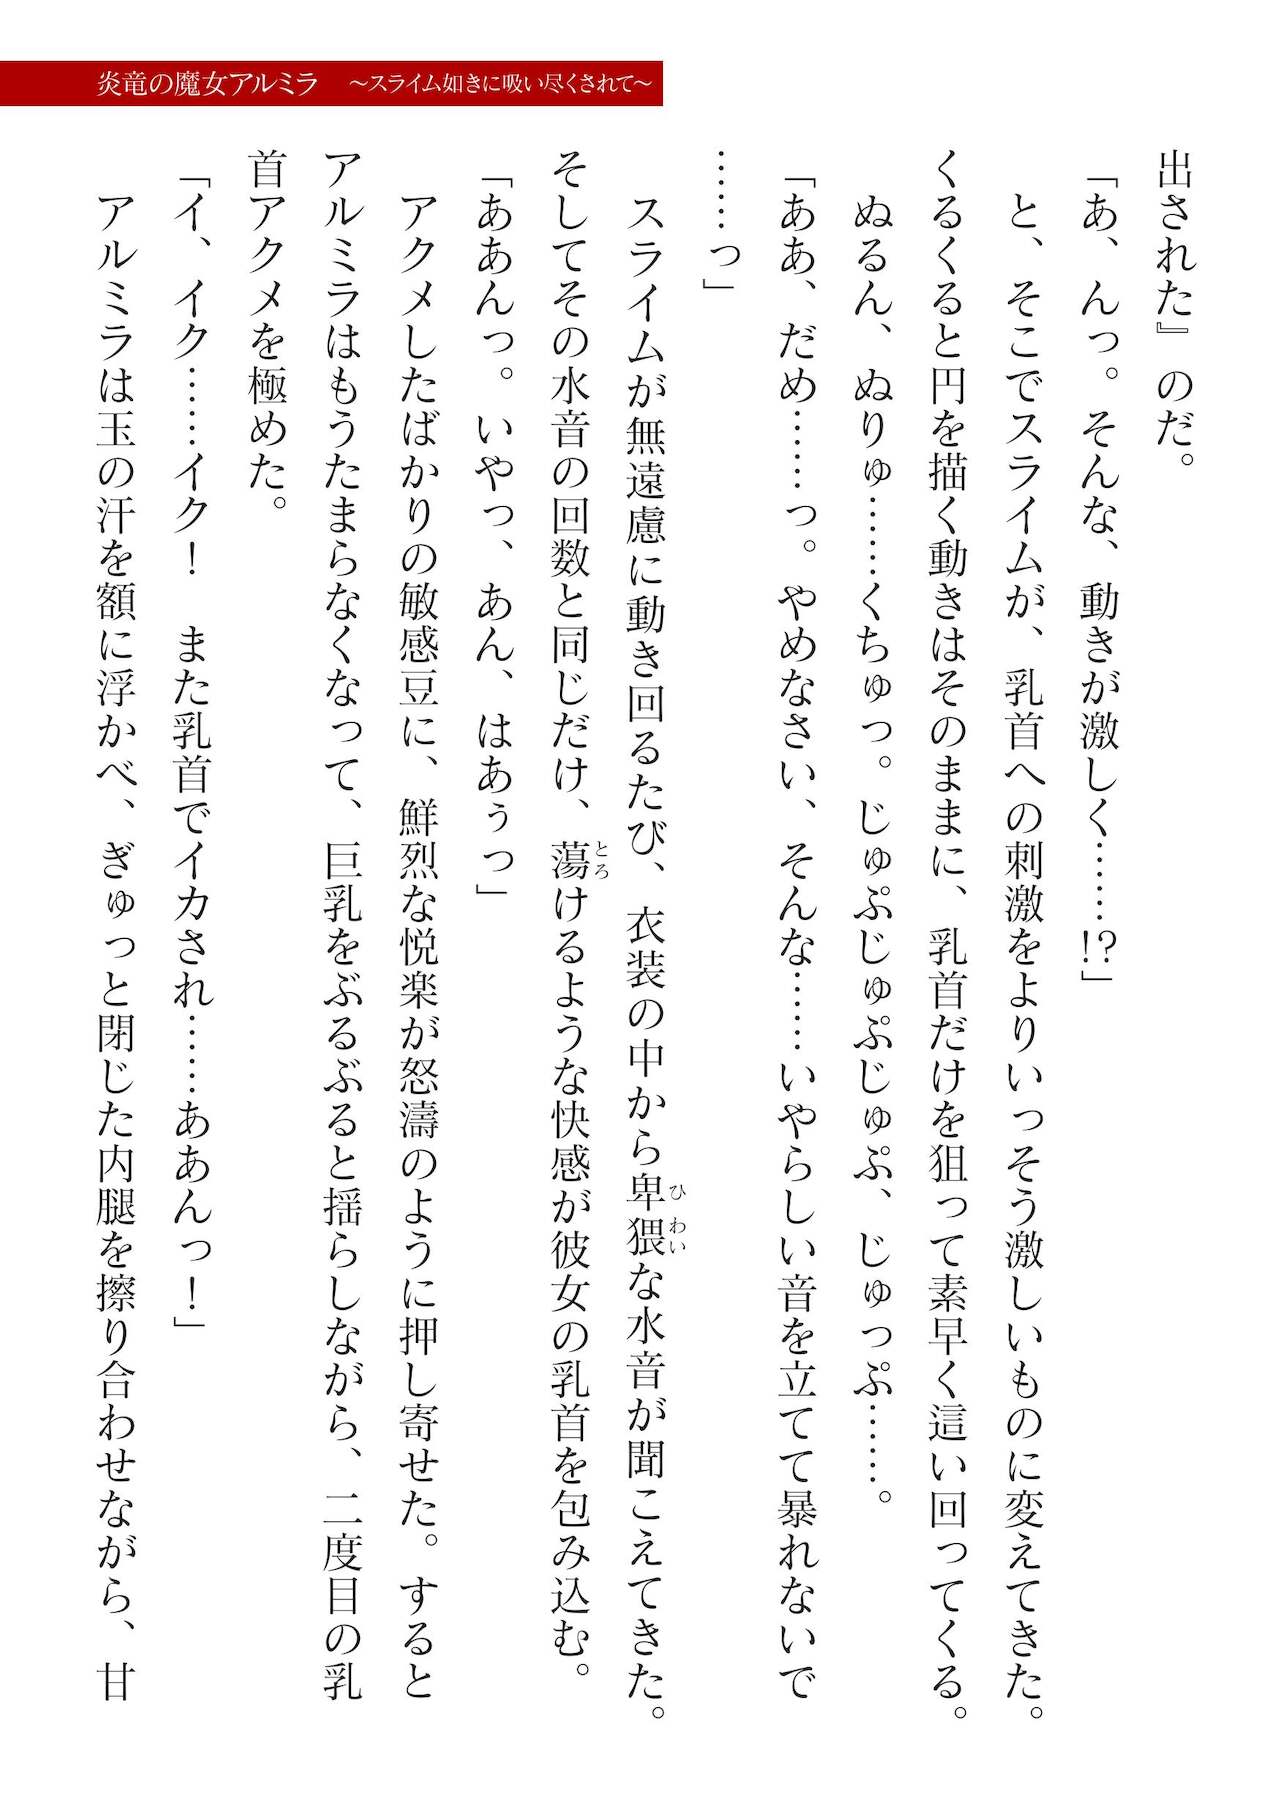 炎竜の魔女アルミラ　～スライム如きに吸い尽くされて～
出された』のだ。
「あ、んっ。そんな、動きが激しく……!?」
　と、そこでスライムが、乳首への刺激をよりいっそう激しいものに変えてきた。
くるくると円を描く動きはそのままに、乳首だけを狙って素早く這い回ってくる。
　ぬるん、ぬりゅ……くちゅっ。じゅぷじゅぷじゅぷ、じゅっぷ……。
「ああ、だめ……っ。やめなさい、そんな……いやらしい音を立てて暴れないで
……っ」
　スライムが無遠慮に動き回るたび、衣装の中から卑猥な水音が聞こえてきた。
そしてその水音の回数と同じだけ、蕩けるような快感が彼女の乳首を包み込む。
「ああんっ。いやっ、あん、はあぅっ」
　アクメしたばかりの敏感豆に、鮮烈な悦楽が怒濤のように押し寄せた。すると
アルミラはもうたまらなくなって、巨乳をぶるぶると揺らしながら、二度目の乳
首アクメを極めた。
「イ、イク……イク！　また乳首でイカされ……ああんっ！」
　アルミラは玉の汗を額に浮かべ、ぎゅっと閉じた内腿を擦り合わせながら、甘